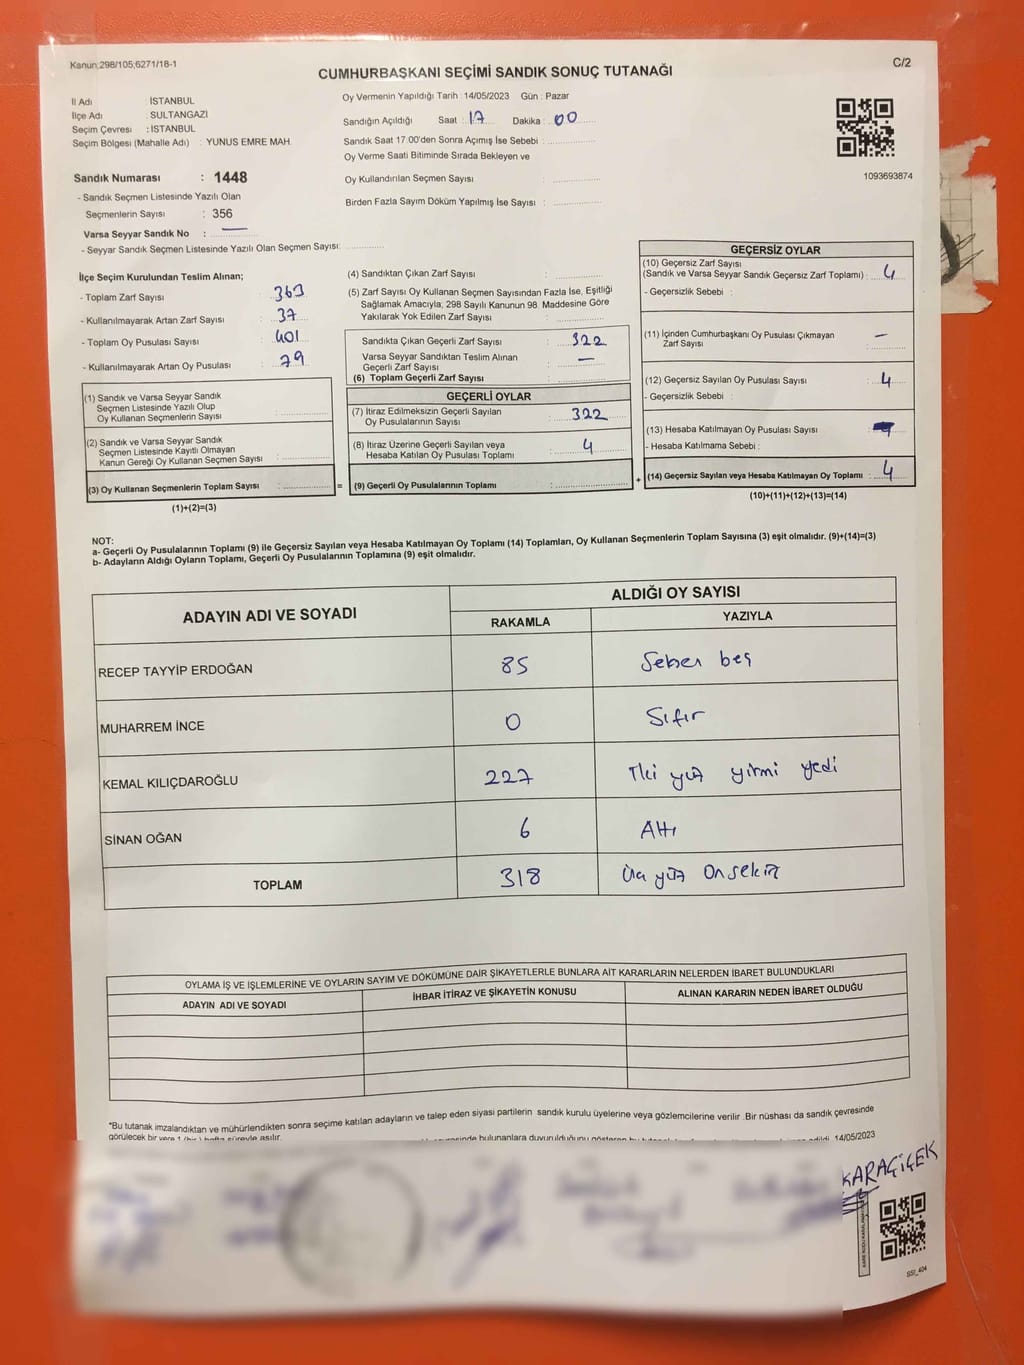 Kanun;298/105;6271/18-1
C/2
CUMHURBAŞKANI SEÇİMİ SANDIK SONUÇ TUTANAĞI
İl Adı : İSTANBUL
İlçe Adı : SULTANGAZİ
Seçim Çevresi : İSTANBUL
Seçim Bölgesi (Mahalle Adı) : YUNUS EMRE MAH.
Oy Vermenin Yapıldığı Tarih :14/05/2023 Gün : Pazar
Sandığın Açıldığı Saat : 17 Dakika : 00
Sandık Saat 17:00'den Sonra Açımış İse Sebebi :
Oy Verme Saati Bitiminde Sırada Bekleyen ve
Oy Kullandırılan Seçmen Sayısı :
Birden Fazla Sayım Döküm Yapılmış İse Sayısı :
1093693874
Sandık Numarası : 1448
- Sandık Seçmen Listesinde Yazılı Olan
Seçmenlerin Sayısı : 356
Varsa Seyyar Sandık No : —
- Seyyar Sandık Seçmen Listesinde Yazılı Olan Seçmen Sayısı:
İlçe Seçim Kurulundan Teslim Alınan;
- Toplam Zarf Sayısı : 363
- Kullanılmayarak Artan Zarf Sayısı : 37
- Toplam Oy Pusulası Sayısı : 401
- Kullanılmayarak Artan Oy Pusulası : 79
(1) Sandık ve Varsa Seyyar Sandık
Seçmen Listesinde Yazılı Olup
Oy Kullanan Seçmenlerin Sayısı :
(2) Sandık ve Varsa Seyyar Sandık
Seçmen Listesinde Kayıtlı Olmayan
Kanun Gereği Oy Kullanan Seçmen Sayısı :
(3) Oy Kullanan Seçmenlerin Toplam Sayısı :
(1)+(2)=(3)
(4) Sandıktan Çıkan Zarf Sayısı :
(5) Zarf Sayısı Oy Kullanan Seçmen Sayısından Fazla İse, Eşitliği
Sağlamak Amacıyla; 298 Sayılı Kanunun 98. Maddesine Göre
Yakılarak Yok Edilen Zarf Sayısı :
Sandıkta Çıkan Geçerli Zarf Sayısı : 322
Varsa Seyyar Sandıktan Teslim Alınan
Geçerli Zarf Sayısı : —
(6) Toplam Geçerli Zarf Sayısı :
GEÇERLİ OYLAR
(7) İtiraz Edilmeksizin Geçerli Sayılan
Oy Pusulalarının Sayısı : 322
(8) İtiraz Üzerine Geçerli Sayılan veya
Hesaba Katılan Oy Pusulası Toplamı : 4
= (9) Geçerli Oy Pusulalarının Toplamı :
GEÇERSİZ OYLAR
(10) Geçersiz Zarf Sayısı
(Sandık ve Varsa Seyyar Sandık Geçersiz Zarf Toplamı) : 4
- Geçersizlik Sebebi :
(11) İçinden Cumhurbaşkanı Oy Pusulası Çıkmayan
Zarf Sayısı : —
(12) Geçersiz Sayılan Oy Pusulası Sayısı : 4
- Geçersizlik Sebebi :
(13) Hesaba Katılmayan Oy Pusulası Sayısı :
- Hesaba Katılmama Sebebi :
+ (14) Geçersiz Sayılan veya Hesaba Katılmayan Oy Toplamı : 4
(10)+(11)+(12)+(13)=(14)
NOT:
a- Geçerli Oy Pusulalarının Toplamı (9) ile Geçersiz Sayılan veya Hesaba Katılmayan Oy Toplamı (14) Toplamları, Oy Kullanan Seçmenlerin Toplam Sayısına (3) eşit olmalıdır. (9)+(14)=(3)
b- Adayların Aldığı Oyların Toplamı, Geçerli Oy Pusulalarının Toplamına (9) eşit olmalıdır.
ADAYIN ADI VE SOYADI
ALDIĞI OY SAYISI
RAKAMLA YAZIYLA
RECEP TAYYİP ERDOĞAN 85 Seksen beş
MUHARREM İNCE 0 Sıfır
KEMAL KILIÇDAROĞLU 227 İki yüz yirmi yedi
SİNAN OĞAN 6 Altı
TOPLAM 318 Üç yüz Onsekiz
OYLAMA İŞ VE İŞLEMLERİNE VE OYLARIN SAYIM VE DÖKÜMÜNE DAİR ŞİKAYETLERLE BUNLARA AİT KARARLARIN NELERDEN İBARET BULUNDUKLARI
ADAYIN ADI VE SOYADI İHBAR İTİRAZ VE ŞİKAYETİN KONUSU ALINAN KARARIN NEDEN İBARET OLDUĞU
*Bu tutanak imzalandıktan ve mühürlendikten sonra seçime katılan adayların ve talep eden siyasi partilerin sandık kurulu üyelerine veya gözlemcilerine verilir .Bir nüshası da sandık çevresinde
görülecek bir yere 1 (bir) hafta süreyle asılır.
bulunanlara duyurulduğunu gösteren bu 14/05/2023
KARAÇİÇEK
SSI_404